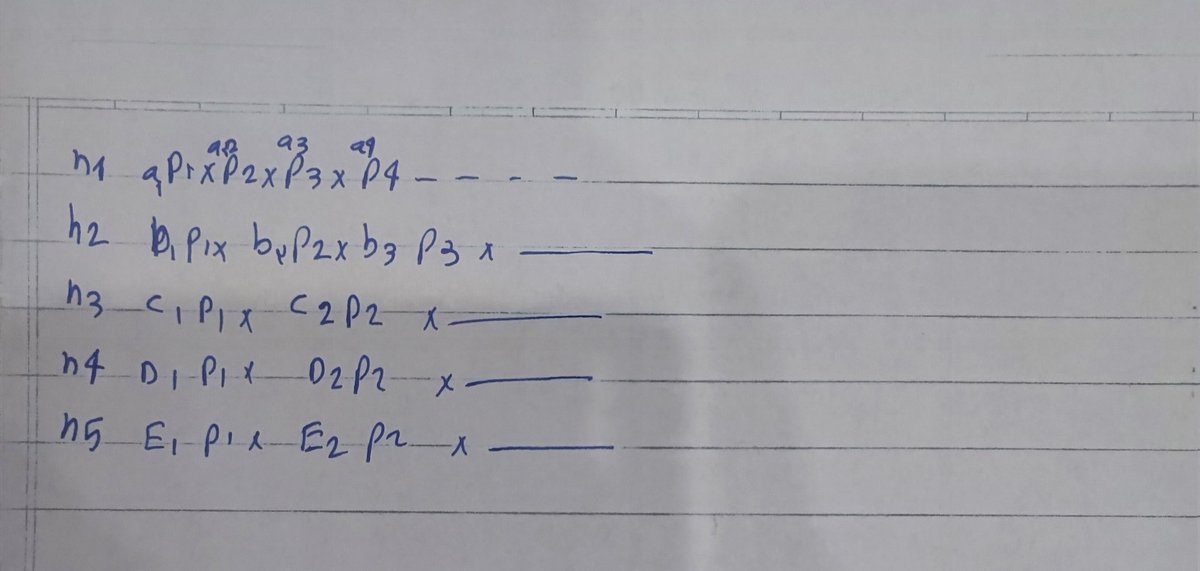 n1 a1P1 x a2P2 x a3P3 x a4P4 - - - -
n2 b1P1 x b2P2 x b3 P3 x ———
n3 C1P1 x C2P2 x ———
n4 D1P1 x D2P2 x ———
n5 E1 P1 x E2 P2 x ———